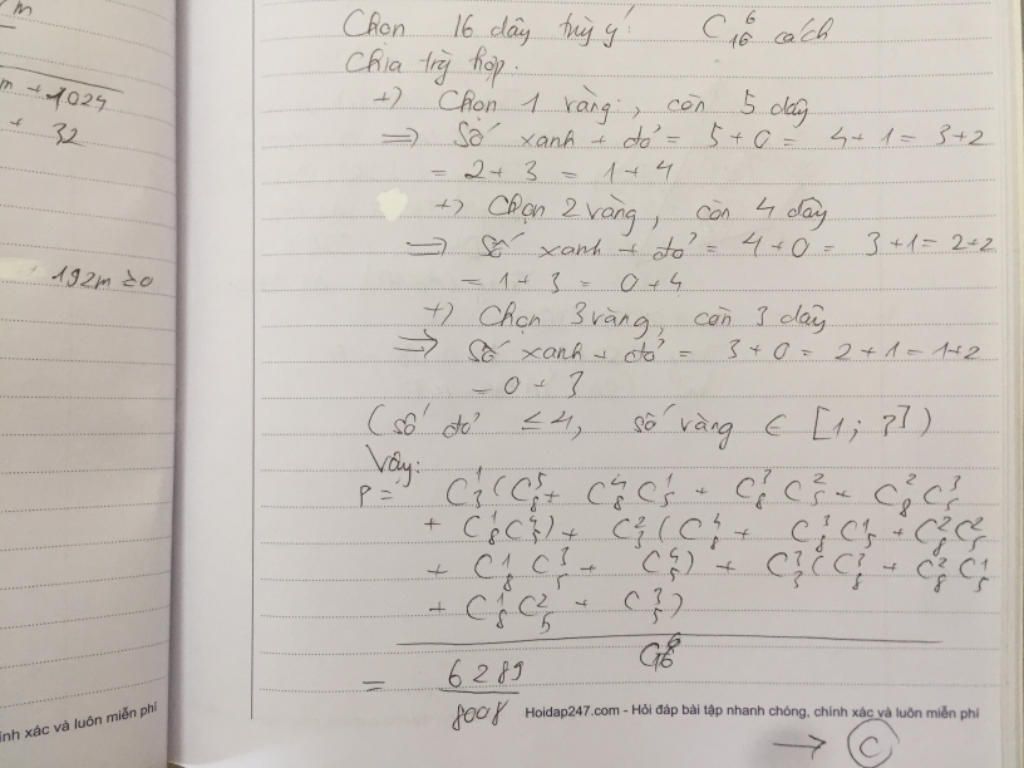 m
m + 1024
+ 32
192m ≥ 0
ính xác và luôn miễn phí
Chọn 16 dây tuỳ ý C₁₆⁶ cách
Chia trg hợp.
+) Chọn 1 vàng, còn 5 dây
=> Số xanh + đỏ = 5 + 0 = 4 + 1 = 3 + 2
= 2 + 3 = 1 + 4
+) Chọn 2 vàng, còn 4 dây
=> Số xanh + đỏ = 4 + 0 = 3 + 1 = 2 + 2
= 1 + 3 = 0 + 4
+) Chọn 3 vàng, còn 3 dây
=> Số xanh + đỏ = 3 + 0 = 2 + 1 = 1 + 2
= 0 + 3
(số đỏ ≤ 4, số vàng ∈ [1; 3])
Vậy:
P = C₃¹(C₈⁵ + C₈⁴C₅¹ + C₈³C₅² + C₈²C₅³
+ C₈¹C₅⁴) + C₃²(C₈⁴ + C₈³C₅¹ + C₈²C₅²
+ C₈¹C₅³ + C₅⁴) + C₃³(C₈³ + C₈²C₅¹
+ C₈¹C₅² + C₅³)
C₁₆⁶
= 6289
8008
Hoidap247.com - Hỏi đáp bài tập nhanh chóng, chính xác và luôn miễn phí
→ C